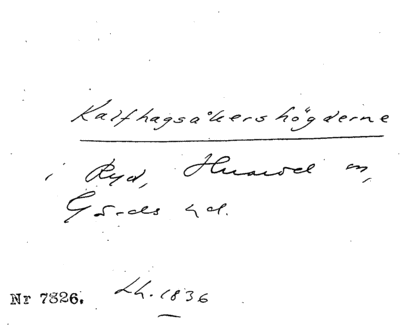 Kalfhagsåkershögderne
i Ryd, Huaröd sn,
Gärds hd.
Nr 7326. Lh. 1836